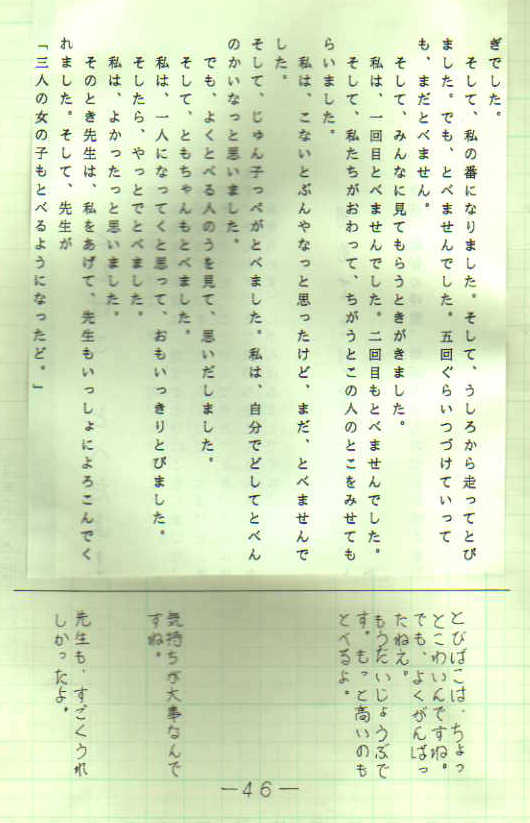 ぎでした。
そして、私の番になりました。そして、うしろから走ってとび
ました。でも、とべませんでした。五回ぐらいつづけていって
も、まだとべません。
そして、みんなに見てもらうときがきました。
私は、一回目とべませんでした。二回目もとべませんでした。
そして、私たちがおわって、ちがうとこの人のとこをみせても
らいました。
私は、こないとぶんやなっと思ったけど、まだ、とべませんで
した。
そして、じゅん子っぺがとべました。私は、自分でどしてとべん
のかいなっと思いました。
でも、よくとべる人のうを見て、思いだしました。
そして、ともちゃんもとべました。
私は、一人になってくと思って、おもいっきりとびました。
そしたら、やっとでとべました。
私は、よかったっと思いました。
そのとき先生は、私をあげて、先生もいっしょによろこんでく
れました。そして、先生が
「三人の女の子もとべるようになったど。」
とびばこは、ちょっ
とこわいんですね。
でも、よくがんばっ
たねえ。
もうだいじょうぶで
す。もっと高いのも
とべるよ。
気持ちが大事なんで
すね。
先生も、すごくうれ
しかったよ。
—46—